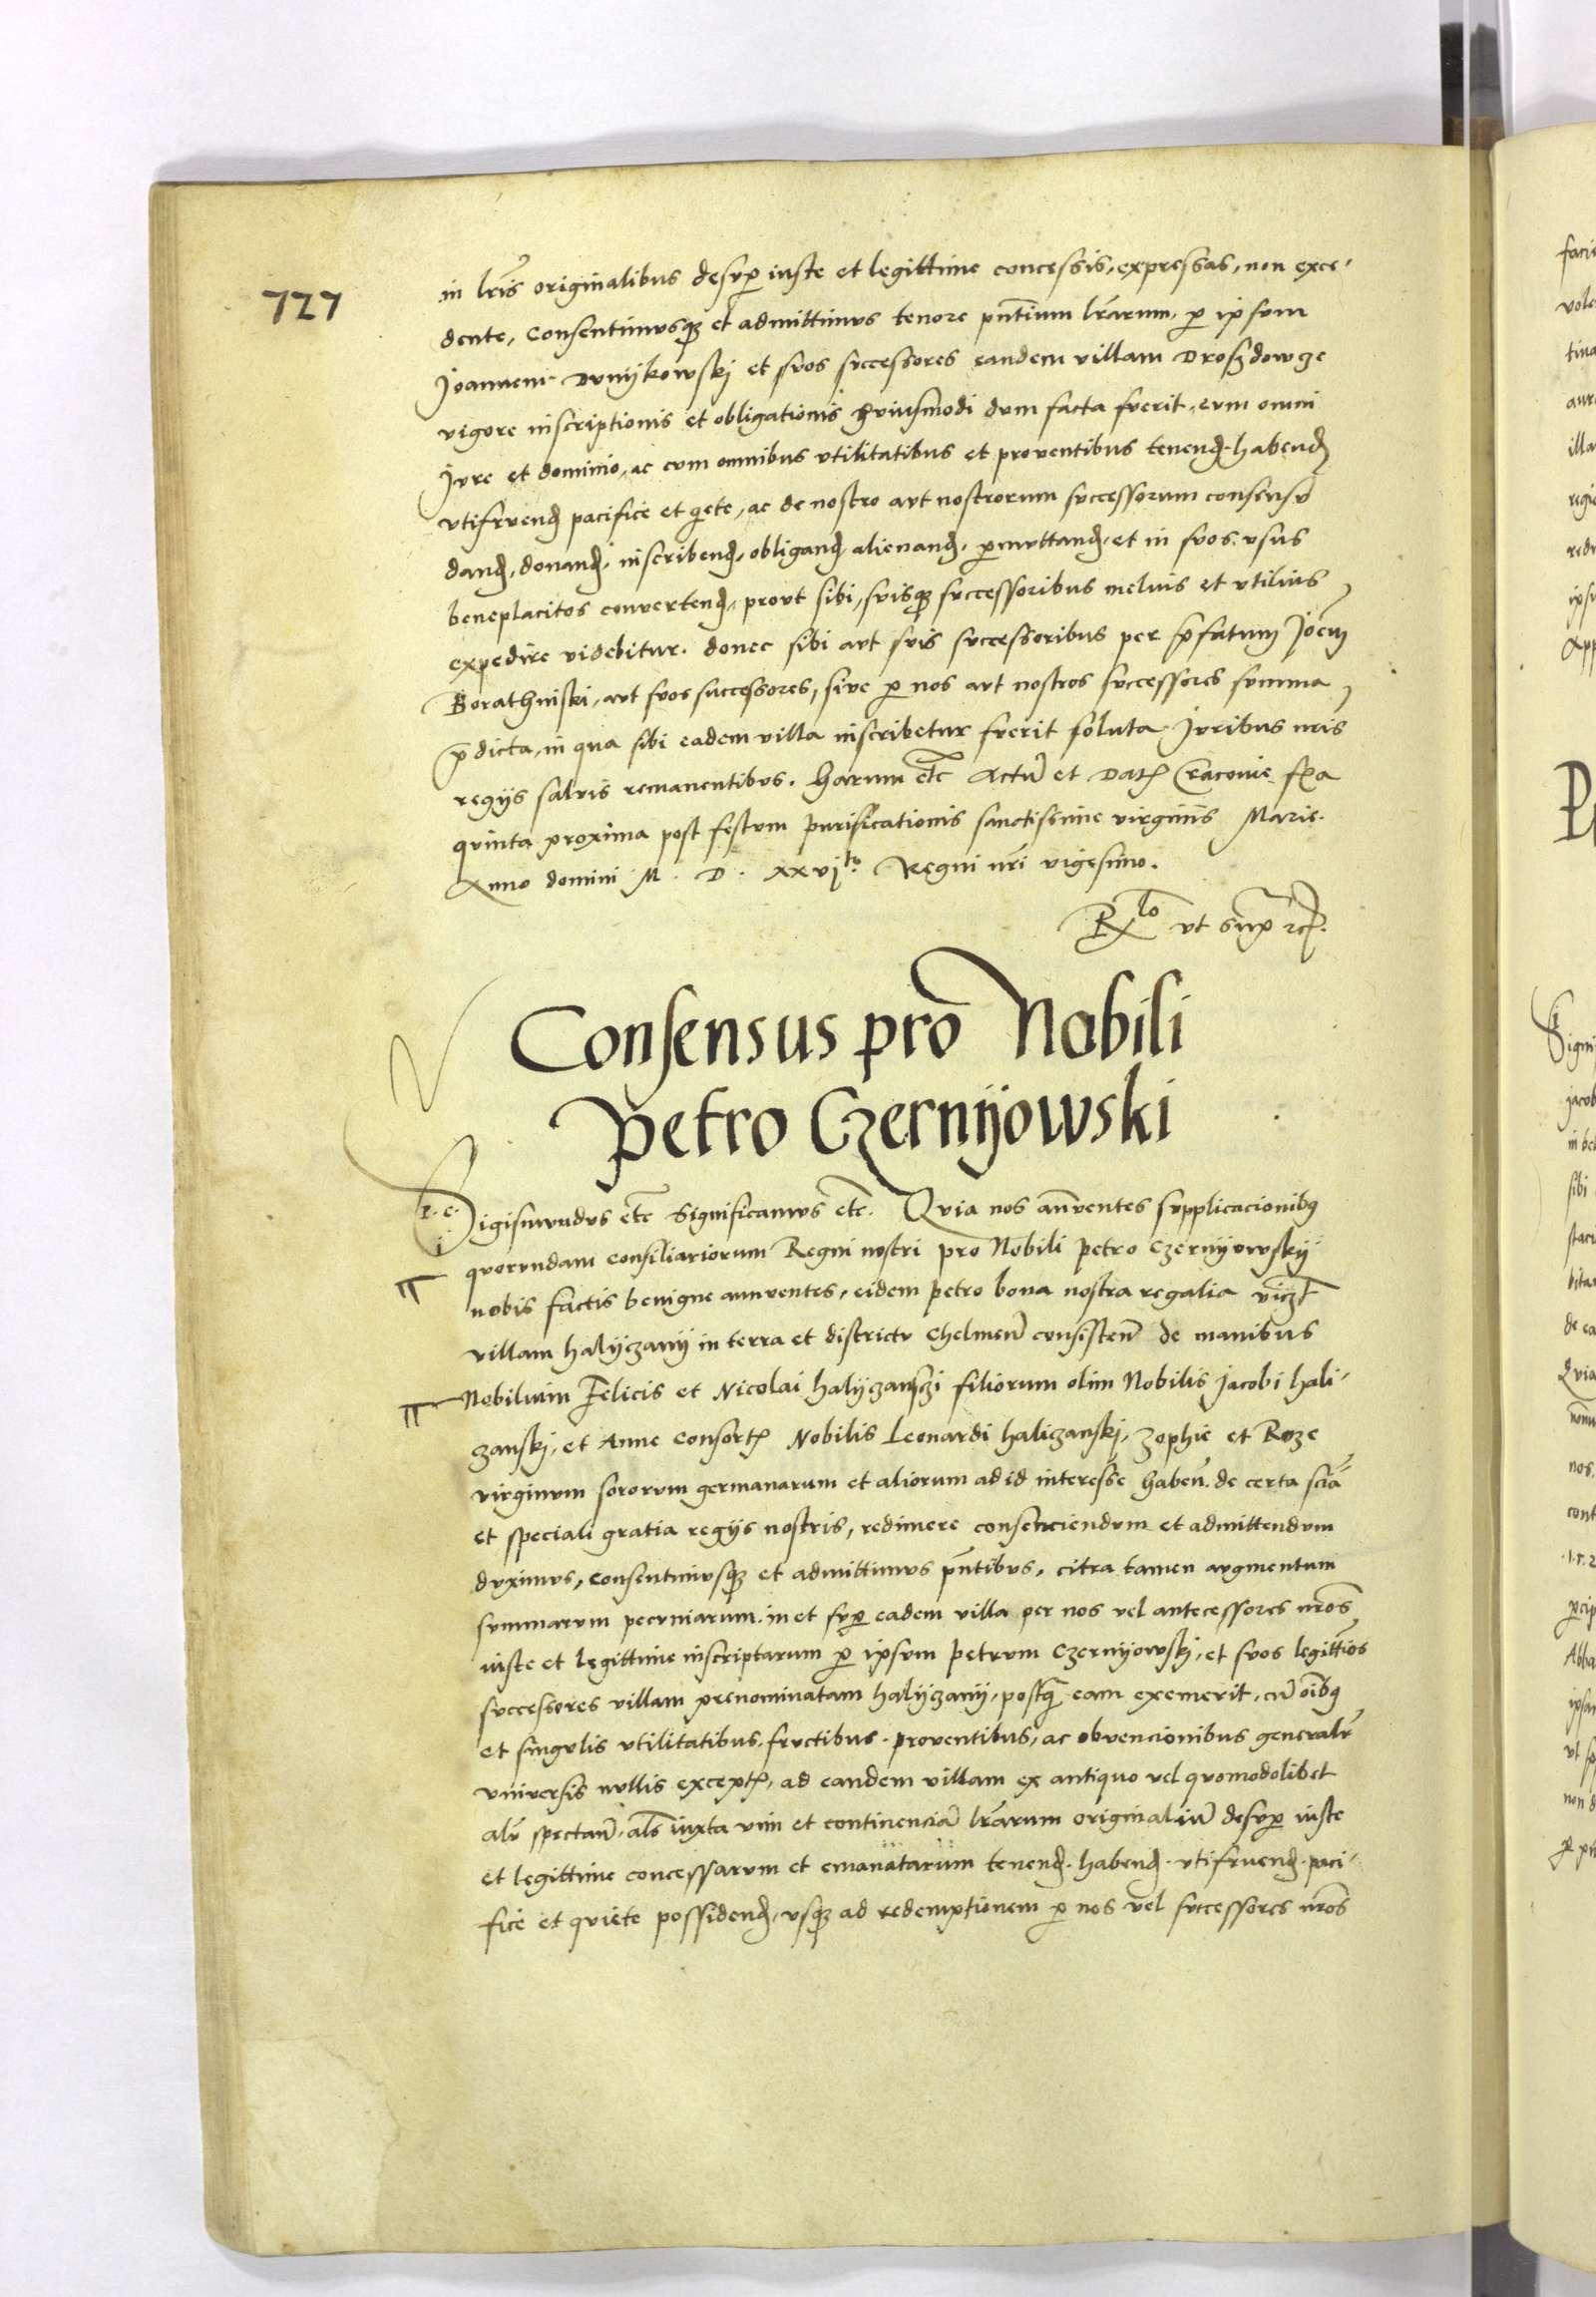 727
in lr̃is originalibus desup̱ iuste et legittime concessis, expressas, non exce-
dente, Consentimusqȝ et admittimus tenore pñtium lr̃arum, p̱ ipsum
Joannem Dunijkowskj et suos successores eandem villam Droszdowcze
vigore inscriptionis et obligationis huiusmodi dum facta fuerit, cum omni
Jure et dominio, ac cum omnibus vtilitatibus et prouentibus tenenꝺ. habenꝺ
vtifruenꝺ pacifice et q̇ete, ac de nostro aut nostrorum successorum consensu
danꝺ, donanꝺ, inscribenꝺ, obliganꝺ alienanꝺ, p̱muttanꝺ, et in suos vsus
beneplacitos conuertenꝺ, prout sibi, suisqȝ successoribus melius et vtilius
expedire videbitur. donec sibi aut suis successoribus per p̃fatum Joem̃
Borathinski, aut suos successores, siue p̱ nos aut nostros successores summa
p̃dicta, in qua sibi eadem villa inscribetur fuerit soluta Juribus nr̃is
regijs saluis remanentibus. Harum etc̃ Actũ et Datꝭ Cracouie fr̃ia
quinta proxima post festum purificationis sanctissime virginis Marie.
Anno domini M. D. xxvjto. Regni nr̃i vigesimo.
Rlo vt sup̱ rc̃.
Consensus pro Nobili
Petro Czernijowski
Sigismundus etc̃ Significamus etc̃. Quia nos añuentes supplicacionibꝰ
quorundam consiliariorum Regni nostri pro Nobili petro Czernijowskij
nobis factis benigne annuentes, eidem petro bona nostra regalia viczt̃
villam halijczanij in terra et districtu Chelmeñ consisteñ de manibus
Nobilium Felicis et Nicolai halijczanskj filiorum olim Nobilis Jacobi hali-
czanskj, et Anne Consortꝭ Nobilis Leonardi haliczanskj, Zophie et Roze
virginum sororum germanarum et aliorum ad id interesse habeñ. de certa scia͂
et speciali gratia regijs nostris, redimere consenciendum et admittendum
duximus, consentimusqȝ et admittimus pñtibus, citra tamen augmentum
summarum pecuniarum in et sup̱ eadem villa per nos vel antecessores nr̃os
iuste et legittime inscriptarum p̱ ipsum Petrum Czernijowskj, et suos legitti͂os
successores villam prenominatam halijczanij, postq̃ eam exemerit, cũ oi͂bꝰ
et singulis vtilitatibus, fructibus, prouentibus, ac obuencionibus generalr̃
vniuersis nullis exceptꝭ, ad eandem villam ex antiquo vel quomodolibet
alr̃ spectañ, al͂s iuxta vim et continenciã lr̃arum originaliũ desup̱ iuste
et legittime concessarum et emanatarum tenenꝺ. habenꝺ. vtifruenꝺ. paci-
fice et quiete possidenꝺ, vsqȝ ad redemptionem p̱ nos vel successores nr̃os